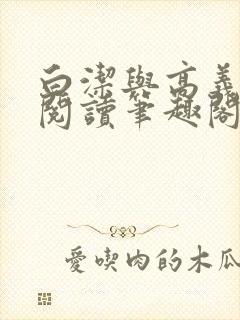 白潔與高義
閱讀筆趣閣
愛喫肉的木瓜